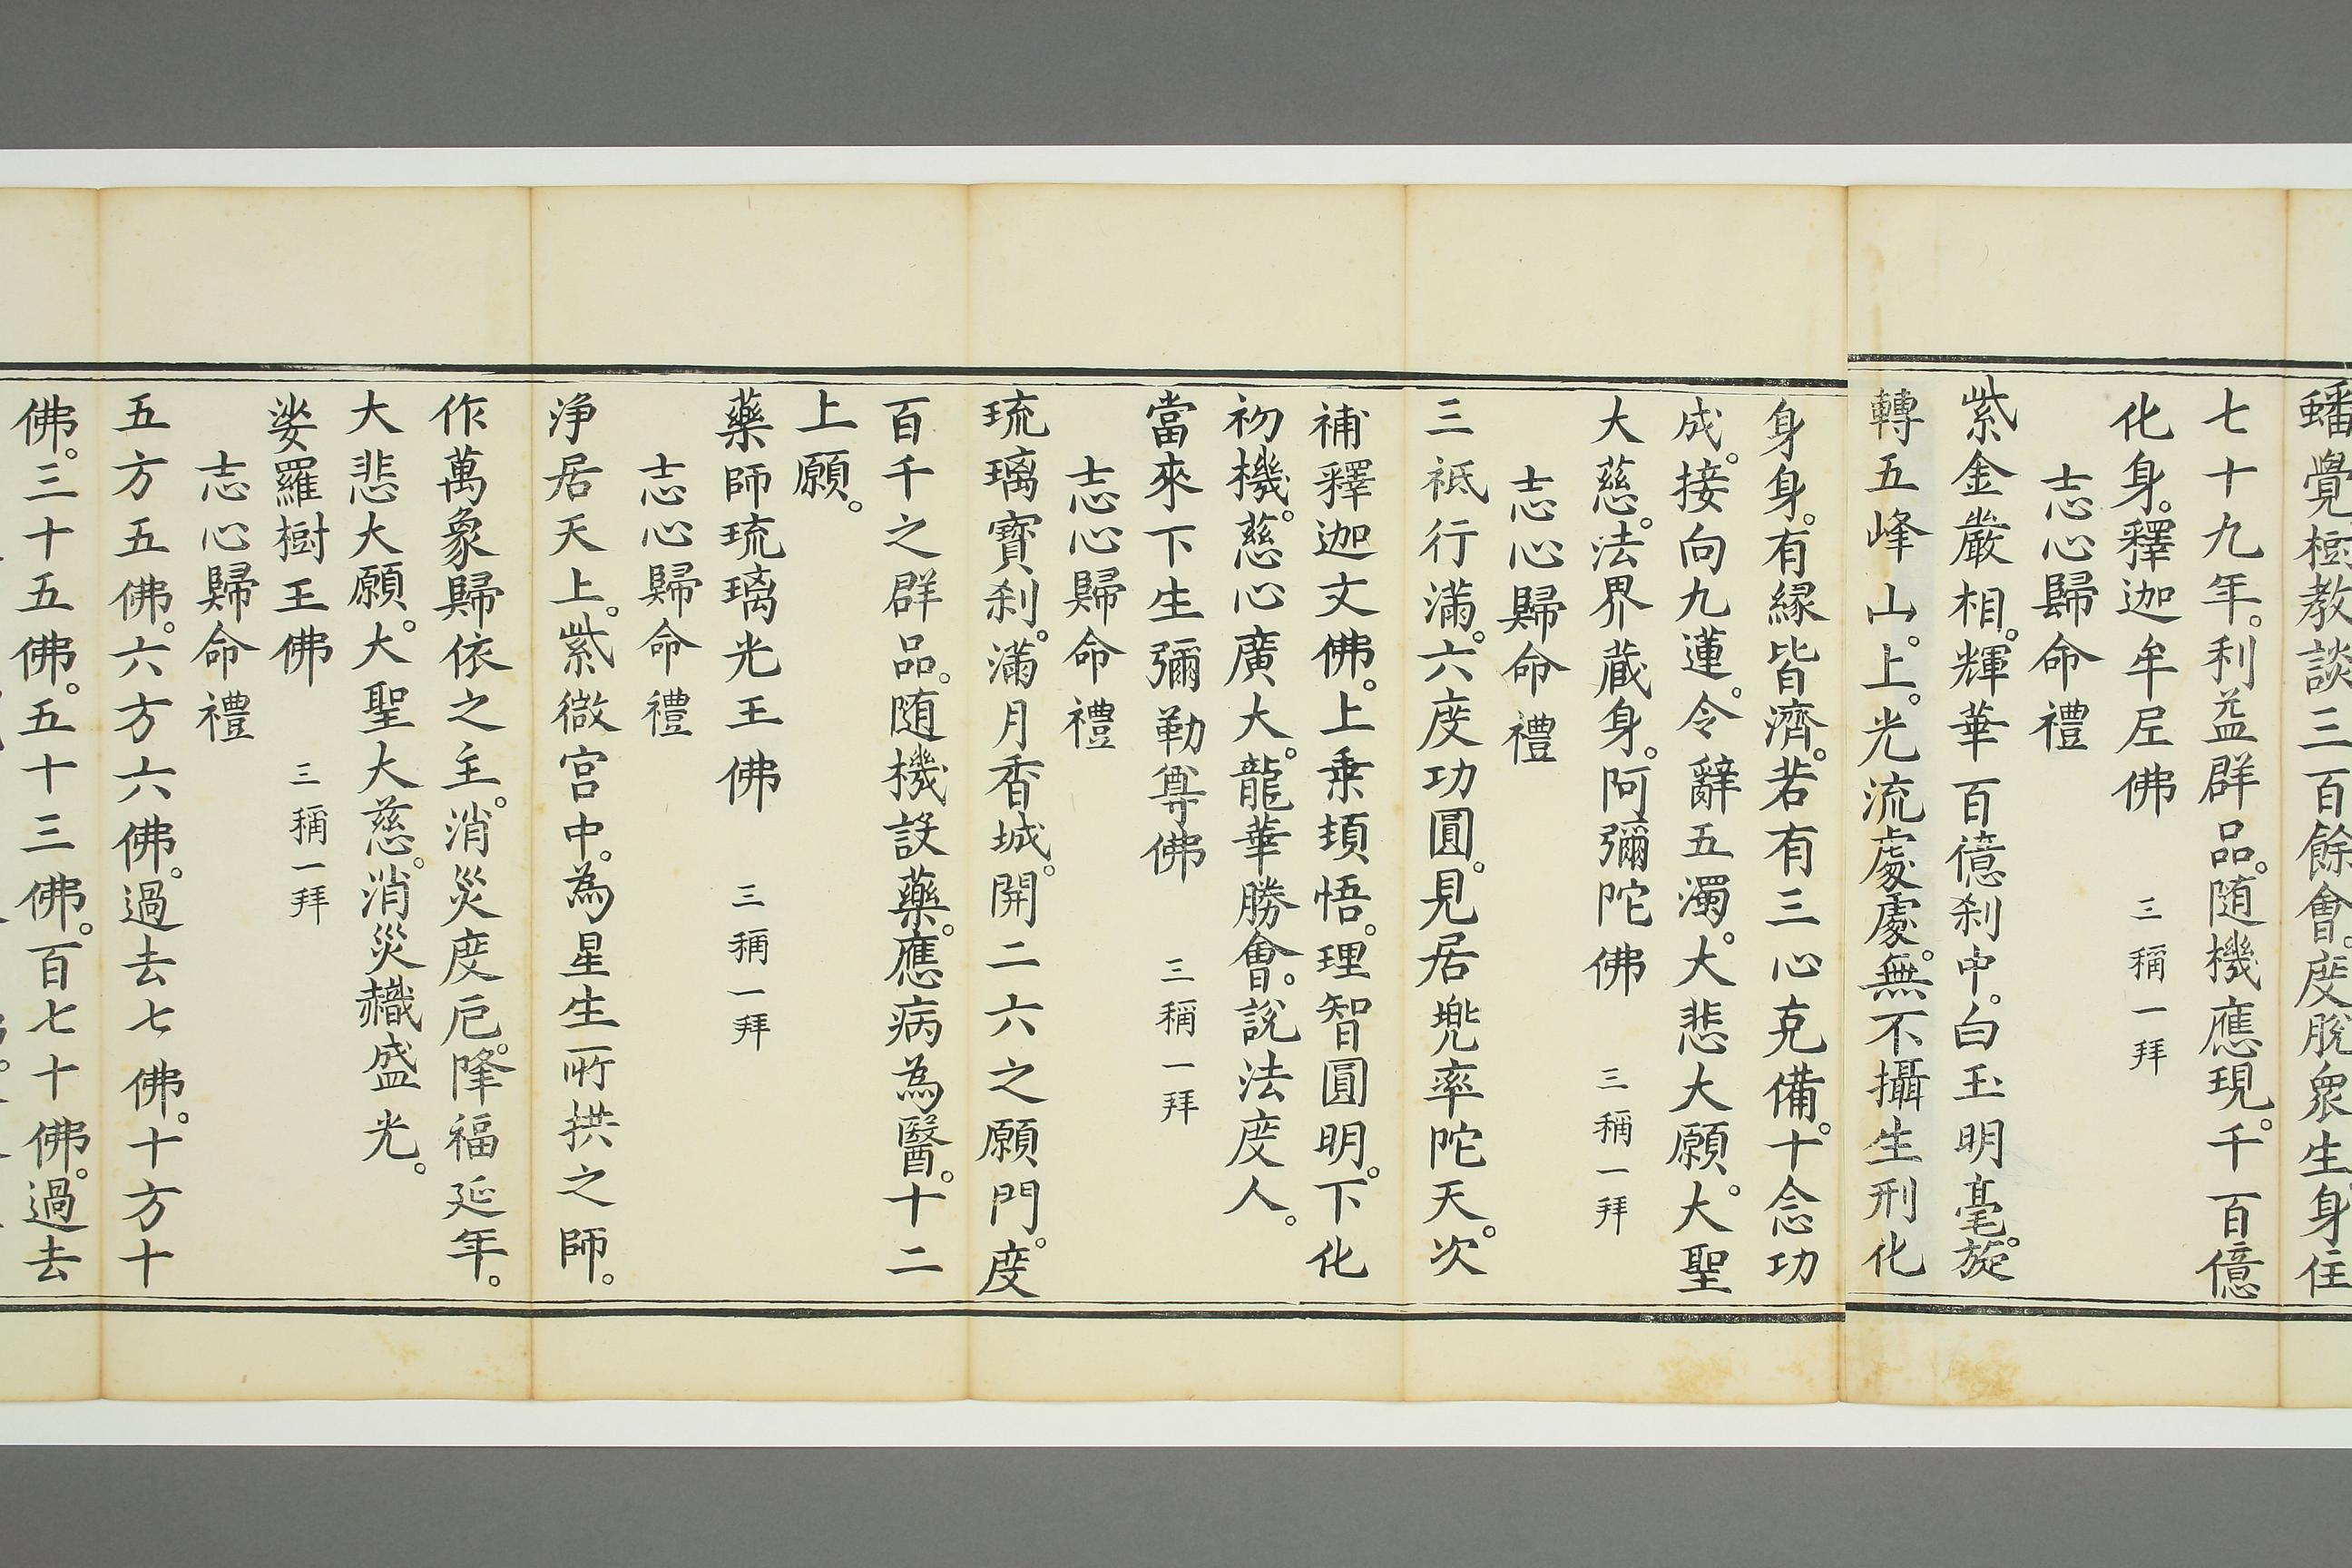 蟠覺樹教談三百餘會。度脫眾生身住
七十九年。利益群品。随機應現。千百億
化身。釋迦牟尼佛　三稱一拜
志心歸命禮
紫金嚴相。輝華百億剎中。白玉明毫。旋
轉五峰山。上。光流處處。無不攝生刑化
身身。有緣皆濟。若有三心克備。十念功
成。接向九蓮。令辭五濁。大悲大願。大聖
大慈。法界藏身。阿彌陀佛　三稱一拜
志心歸命禮
三祇行滿。六度功圓。見居兠率陀天。次
補釋迦文佛。上乗頓悟。理智圓明。下化
初機。慈心廣大。龍華勝會。說法度人。
當來下生彌勒尊佛　三稱一拜
志心歸命禮
琉璃寶剎。滿月香城。開二六之願門。度
百千之群品。随機設藥。應病為醫。十二
上願。
藥師琉璃光王佛　三稱一拜
志心歸命禮
淨居天上。紫微宮中。為星生所拱之師。
作萬象歸依之主。消災度厄。降福延年。
大悲大願。大聖大慈。消災熾盛光。
娑羅樹王佛　三稱一拜
志心歸命禮
五方五佛。六方六佛。過去七佛。十方十
佛。三十五佛。五十三佛。百七十佛。過去